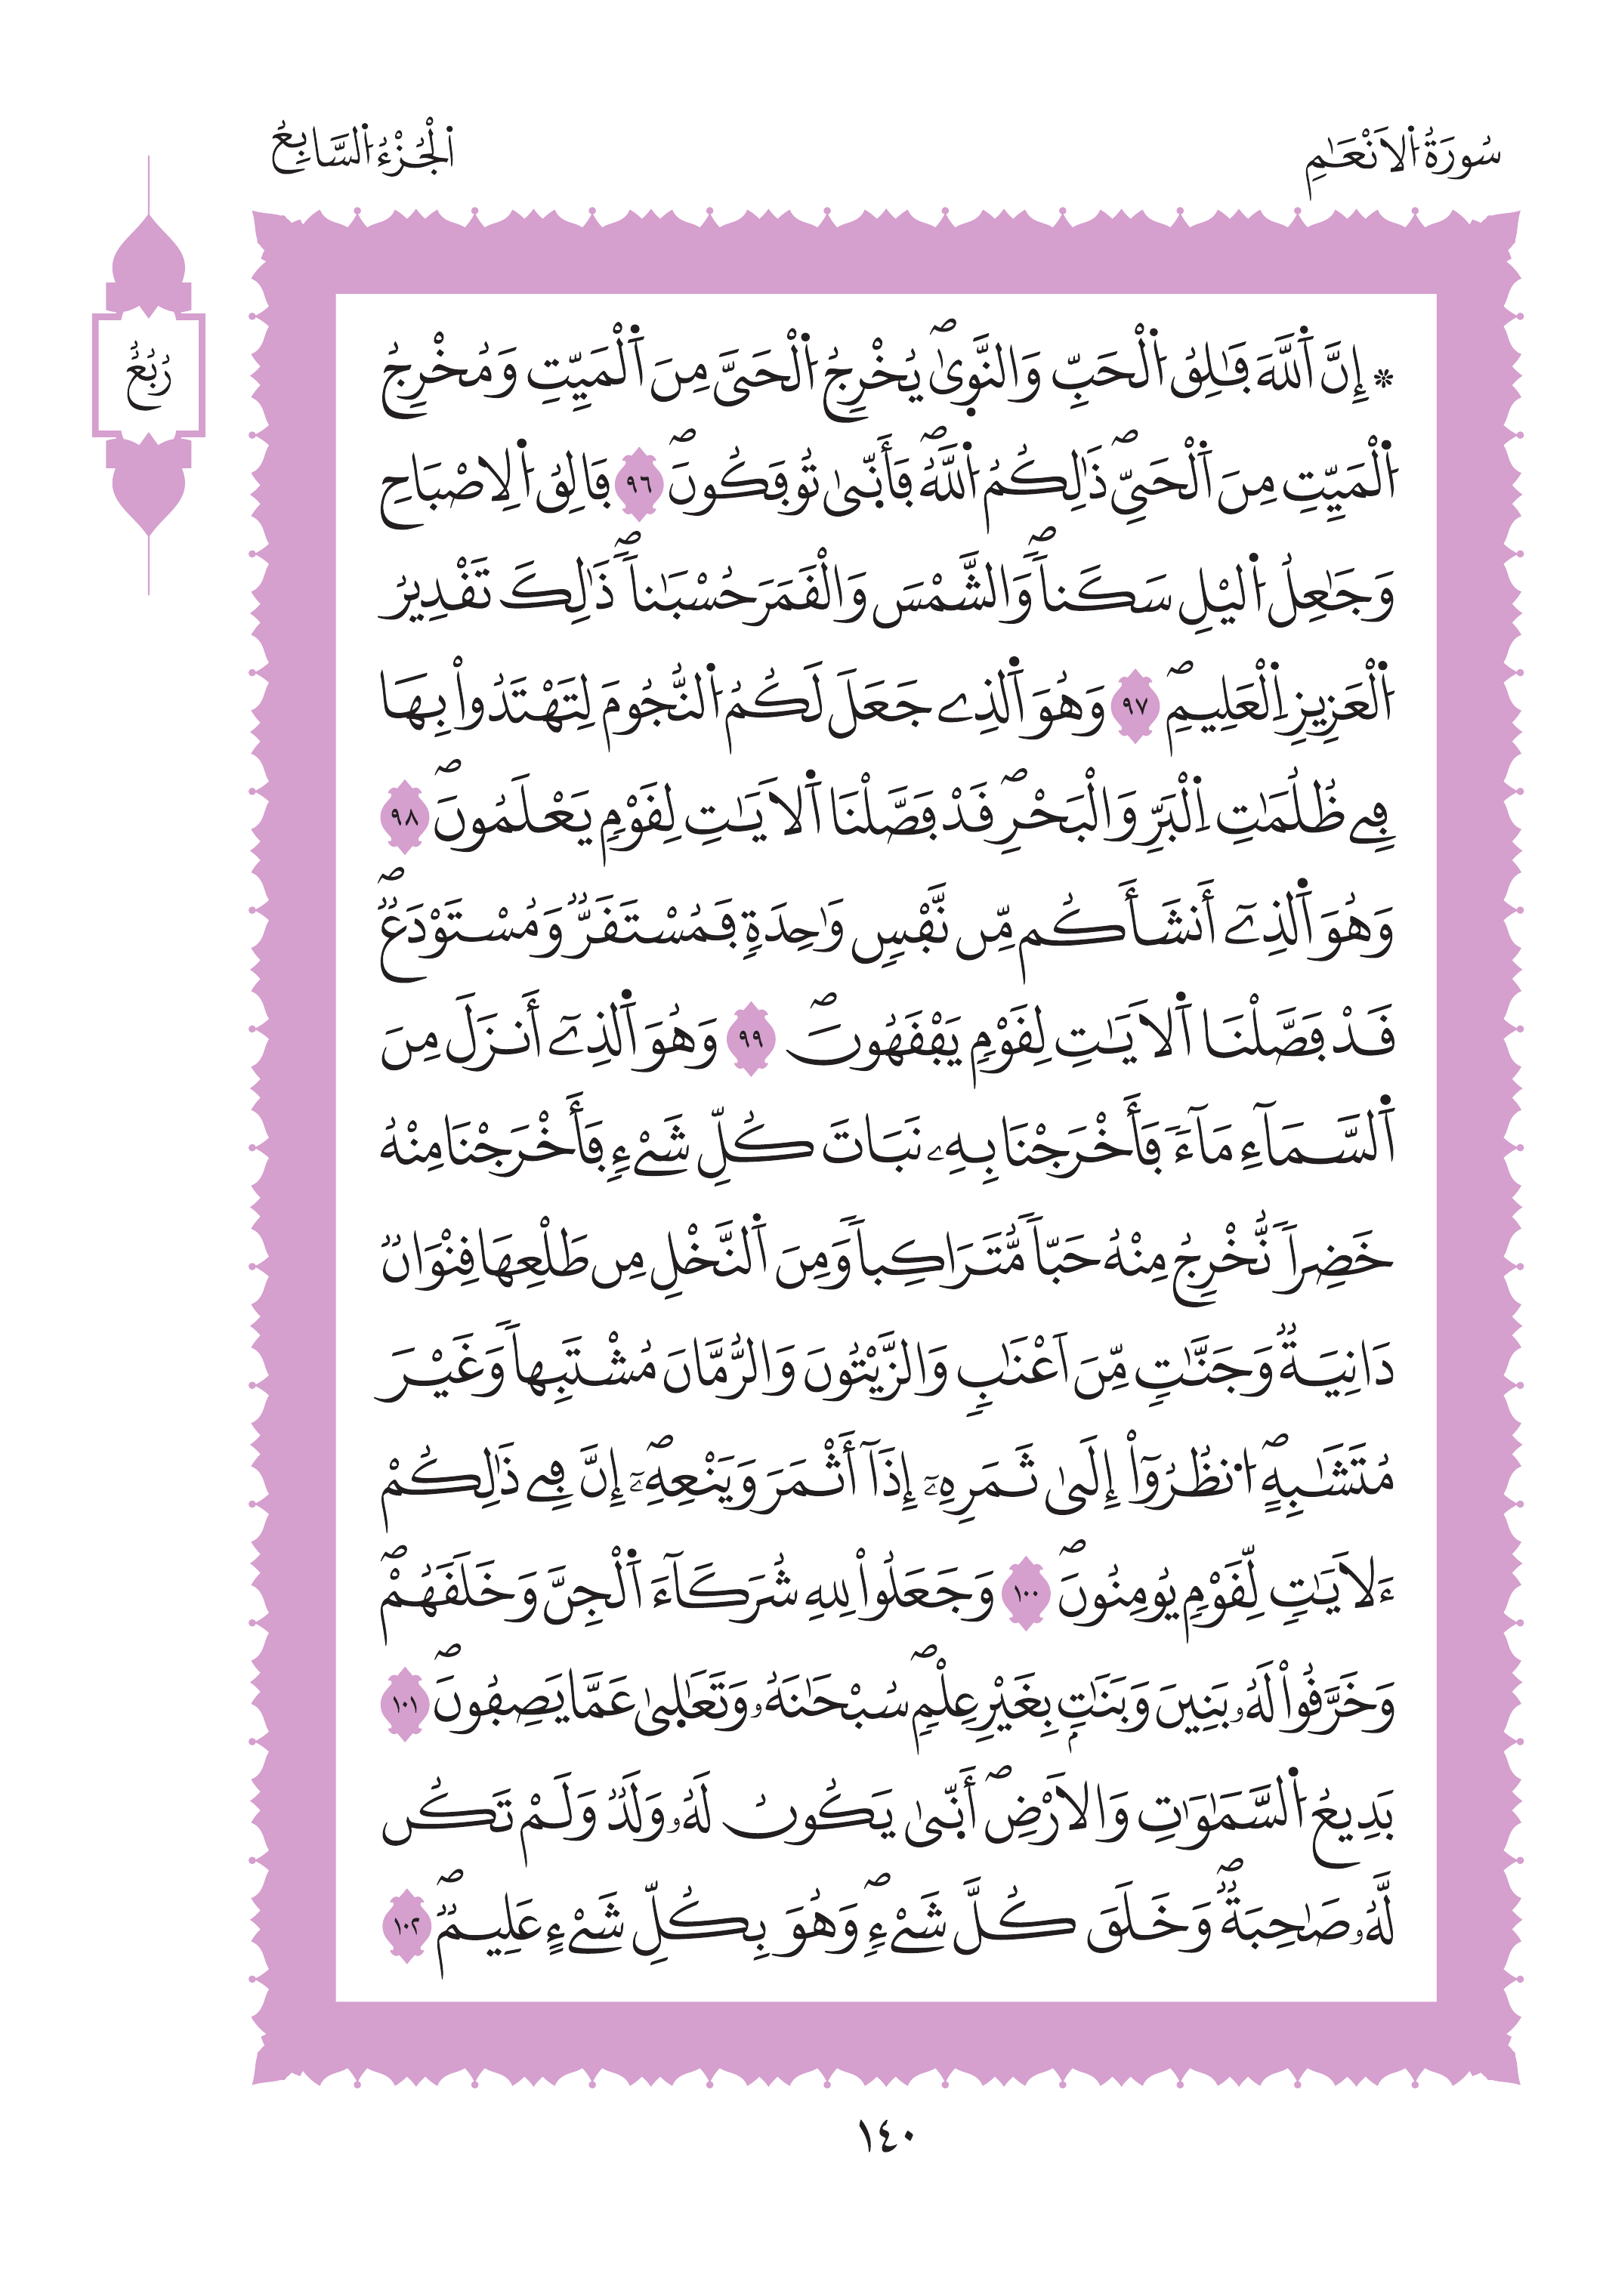 سُورَةُ اُ۬لَانْعَٰمِ
اَ۬لْجُزْءُ اُ۬لسَّابِعُ
رُبُعُ
* إِنَّ اَ۬للَّهَ فَٰلِقُ اُ۬لْحَبِّ وَالنَّو۪يٰۖ يُخْرِجُ اُ۬لْحَيَّ مِنَ اَ۬لْمَيِّتِ وَمُخْرِجُ
اُ۬لْمَيِّتِ مِنَ اَ۬لْحَيِّۖ ذَٰلِكُمُ اُ۬للَّهُۖ فَأَنّ۪يٰ تُوفَكُونَۖ ٩٦ فَالِقُ اُ۬لِاصْبَاحِ
وَجَٰعِلُ اُ۬ليْلِ سَكَناٗۖ وَالشَّمْسَ وَالْقَمَرَ حُسْبَٰناٗۖ ذَٰلِكَ تَقْدِيرُ
اُ۬لْعَزِيزِ اِ۬لْعَلِيمِۖ ٩٧ وَهُوَ اَ۬لذِے جَعَلَ لَكُمُ اُ۬لنُّجُومَ لِتَهْتَدُواْ بِهَا
فِے ظُلُمَٰتِ اِ۬لْبَرِّ وَالْبَحْرِۖ قَدْ فَصَّلْنَا اَ۬لَايَٰتِ لِقَوْمٖ يَعْلَمُونَۖ ٩٨
وَهُوَ اَ۬لذِےٓ أَنشَأَكُم مِّن نَّفْسٖ وَٰحِدَةٖ فَمُسْتَقَرّٞ وَمُسْتَوْدَعٞۖ
قَدْ فَصَّلْنَا اَ۬لَايَٰتِ لِقَوْمٖ يَفْقَهُونَۖ ٩٩ وَهُوَ اَ۬لذِےٓ أَنزَلَ مِنَ
اَ۬لسَّمَآءِ مَآءٗ فَأَخْرَجْنَا بِهِۦ نَبَاتَ كُلِّ شَےْءٖ فَأَخْرَجْنَا مِنْهُ
خَضِراٗ نُّخْرِجُ مِنْهُ حَبّاٗ مُّتَرَاكِباٗ وَمِنَ اَ۬لنَّخْلِ مِن طَلْعِهَا قِنْوَانٞ
دَانِيَةٞ وَجَنَّٰتٖ مِّنَ اَعْنَٰبٖ وَالزَّيْتُونَ وَالرُّمَّانَ مُشْتَبِهاٗ وَغَيْرَ
مُتَشَٰبِهٍۖ اُ۟نظُرُوٓاْ إِلَيٰ ثَمَرِهِۦٓ إِذَآ أَثْمَرَ وَيَنْعِهِۦٓۖ إِنَّ فِے ذَٰلِكُمْ
ءَلَايَٰتٖ لِّقَوْمٖ يُومِنُونَۖ ١٠٠ وَجَعَلُواْ لِلهِ شُرَكَآءَ اَ۬لْجِنَّ وَخَلَقَهُمْۖ
وَخَرَّقُواْ لَهُۥ بَنِينَ وَبَنَٰتِۢ بِغَيْرِ عِلْمٖۖ سُبْحَٰنَهُۥ وَتَعَٰل۪يٰ عَمَّا يَصِفُونَۖ ١٠١
بَدِيعُ اُ۬لسَّمَٰوَٰتِ وَالَارْضِۖ أَنّ۪يٰ يَكُونُ لَهُۥ وَلَدٞ وَلَمْ تَكُن
لَّهُۥ صَٰحِبَةٞۖ وَخَلَقَ كُلَّ شَےْءٖۖ وَهُوَ بِكُلِّ شَےْءٍ عَلِيمٞۖ ١٠٢
١٤٠